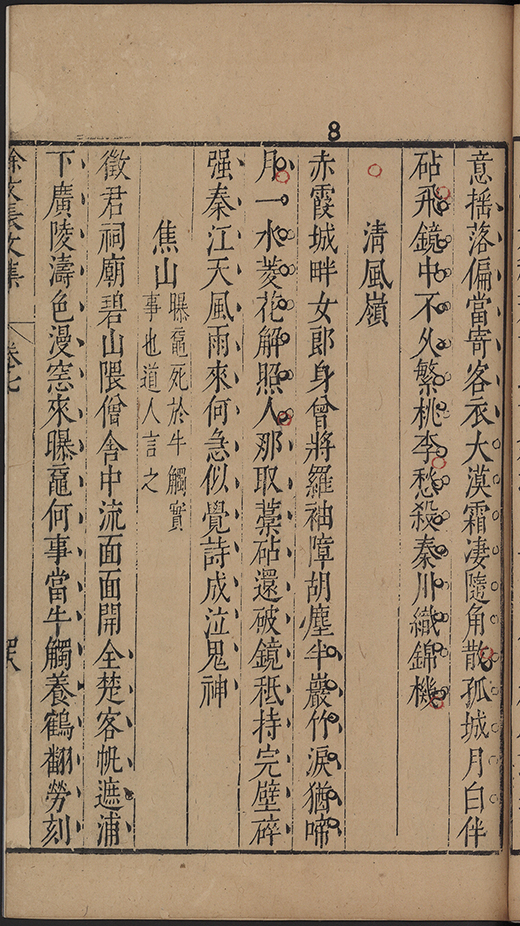 8
意搖落偏當寄客衣大漠霜凄隨角散孤城月白伴
砧飛鏡中不久繁桃李愁殺秦川織錦機
清風嶺
赤霞城畔女郎身曾將羅袖障胡塵半巖竹淚猶啼
月一水菱花解照人那取藁砧還破鏡秪持完璧碎
强秦江天風雨來何急似覺詩成泣鬼神
焦山
曝黿死於牛觸實
事也道人言之
徵君祠廟碧山隈僧舍中流面面開全楚客帆遮浦
下廣陵濤色漫窓來曝黿何事當牛觸養鶴翻勞刻
徐文長文集
卷七